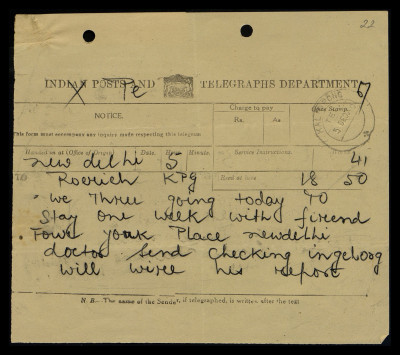 22
X Te
INDIAN POSTS AND TELEGRAPHS DEPARTMENT
67
NOTICE.
This form must accompany any inquiry made respecting this telegram
Charge to pay
Rs. As.
Office Stamp.
Handed in at (Office of Origin). Date. Hour. Minute. Service Instructions.
new delhi 5 41
TO
Recd at here
Roerich KPG 18 50
we Three going today 40
Stay one week with fireend
Four York Place newdelhi
doctor send checking ingeborg
will wire his report
N. B.—The name of the Sender, if telegraphed, is written after the text